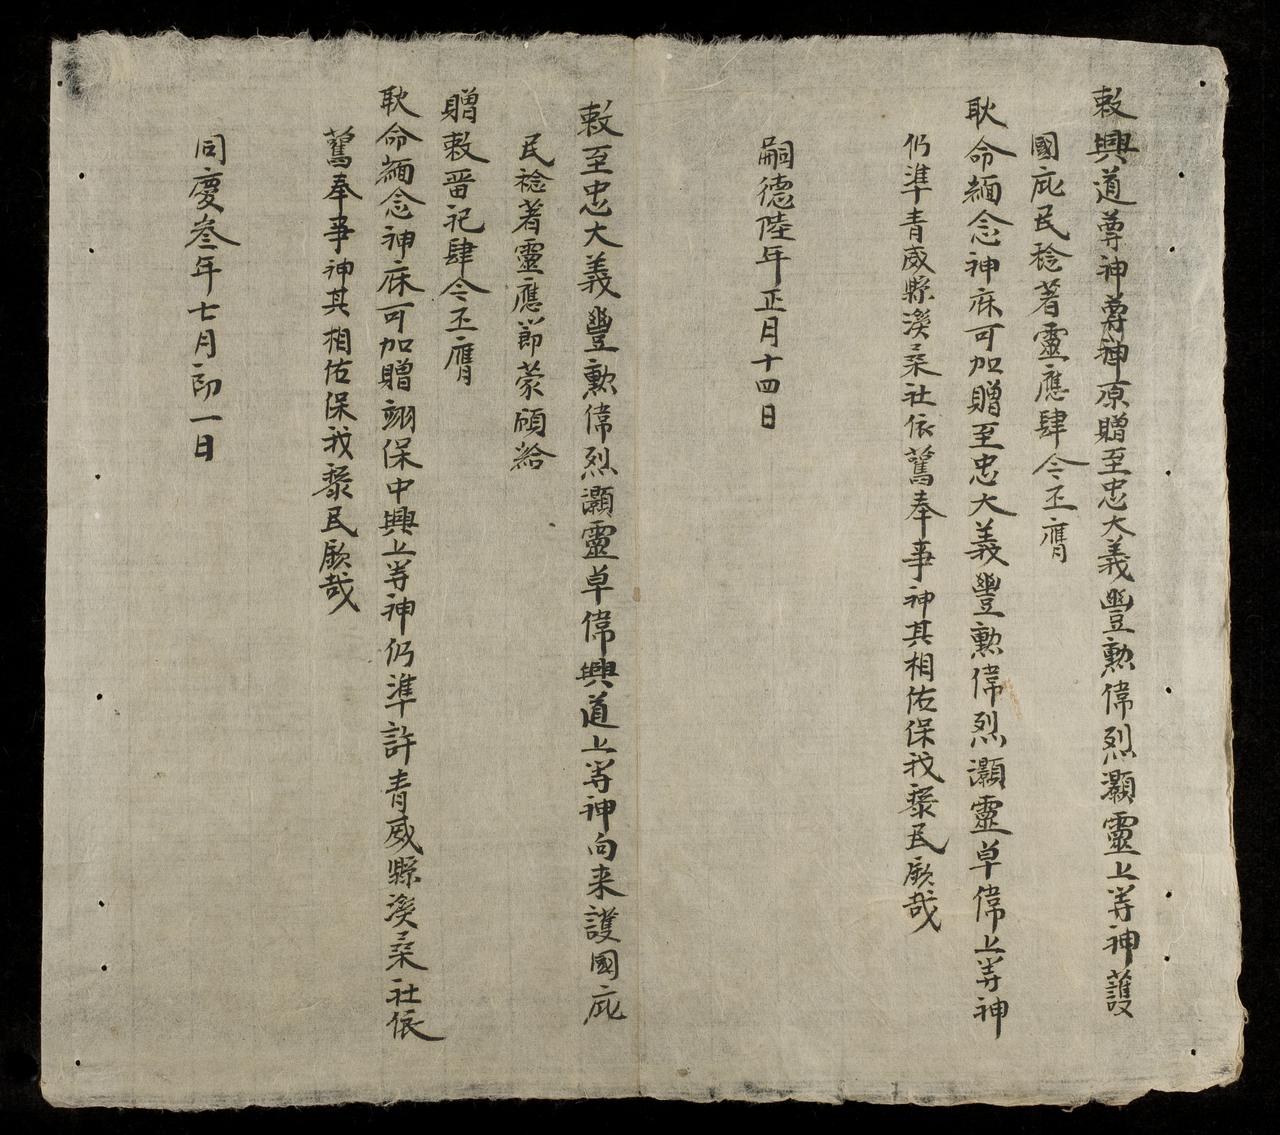 敕興道尊神尊神原贈至忠大義豐勲偉烈灝靈上等神護
國庇民稔著靈應肆今丕膺
耿命緬念神庥可加贈至忠大義豐勲偉烈灝靈卓偉上等神
仍準青威縣渙桑社依舊奉事神其相佑保我黎民厥哉
嗣德陸年正月十四日
敕至忠大義豐勲偉烈灝靈卓偉興道上等神向来護國庇
民稔著靈應節蒙頒給
贈敕晋祀肆今丕膺
耿命緬念神庥可加贈翊保中興上等神仍準許青威縣渙桑社依
舊奉事神其相佑保我黎民厥哉
同慶叄年七月初一日